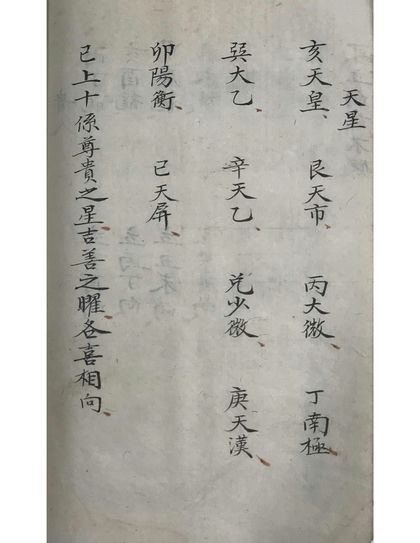 天星
亥天皇 艮天市 丙大微 丁南極
巽大乙 辛天乙 兌少微 庚天漢
卯陽衡 巳天屏
已上十係尊貴之星吉善之曜各喜相向